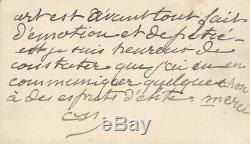 art est avant tout fait
d'émotion et de piété -
et je suis heureux de
constater que j'ai eu en
communiquer quelque chose
à des esprits d'élite. merci